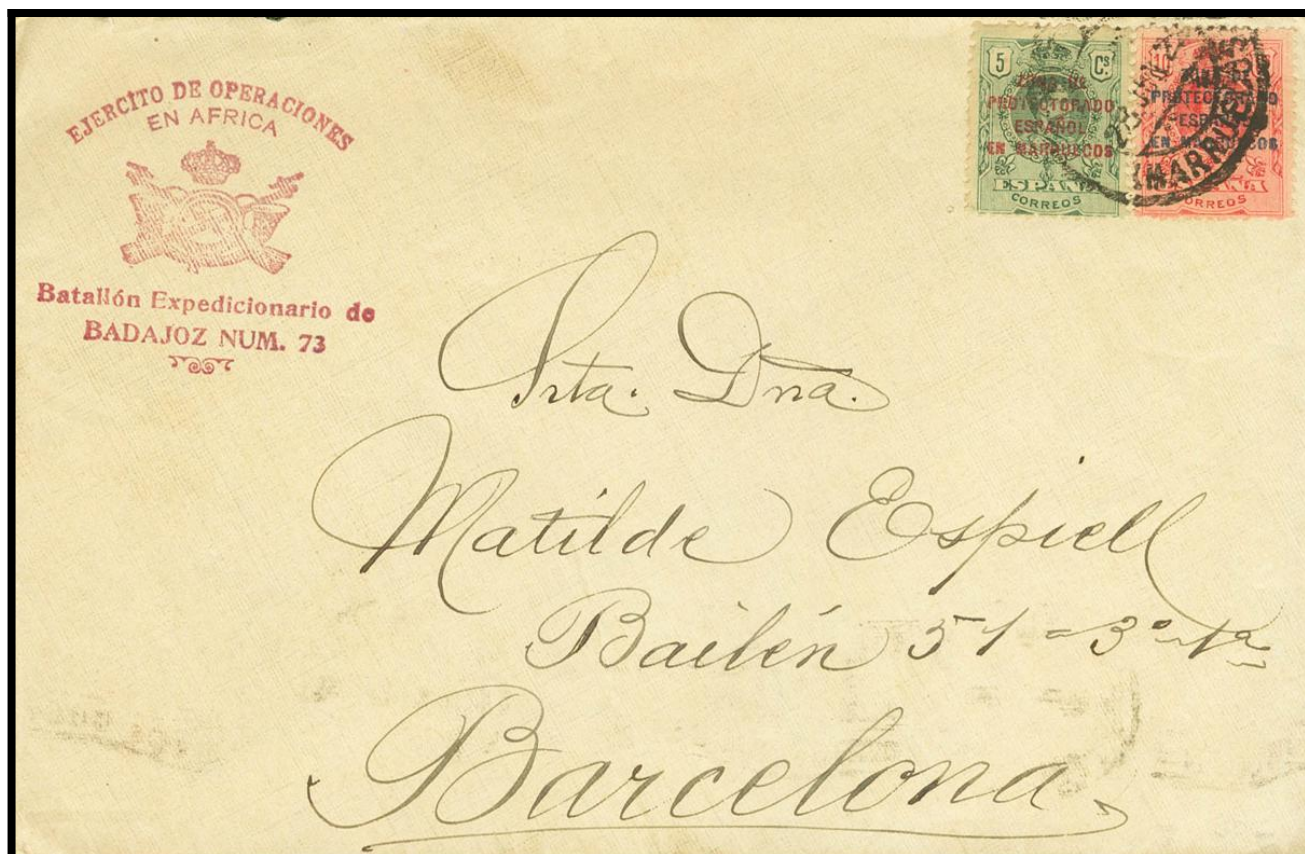 EJERCITO DE OPERACIONES
EN AFRICA
Batallón Expedicionario de
BADAJOZ NUM. 73
5 Cs
ZONA DE
PROTECTORADO
ESPAÑOL
EN MARRUECOS
ESPAÑA
CORREOS
PROTECTORADO
EN MARRUECOS
CORREOS
Srta. Dna.
Matilde Espiell
Bailén 51=3º-1ª
Barcelona